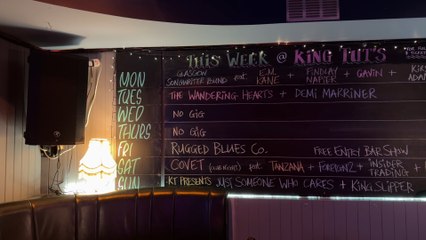 THIS WEEK @ KING TUT'S
MON GLASGOW SONGWRITER ROUND feat. E.M. KANE + FINDLAY NAPIER + GAVIN +
TUES THE WANDERING HEARTS + DEMI MARRINER
WED NO GIG
THURS NO GIG
FRI RUGGED BLUES CO. FREE ENTRY BAR SHOW
SAT COVET feat. TANZANA + + INSIDER TRADING +
SUN KT PRESENTS JUST SOMEONE WHO CARES + KING SLIPPER